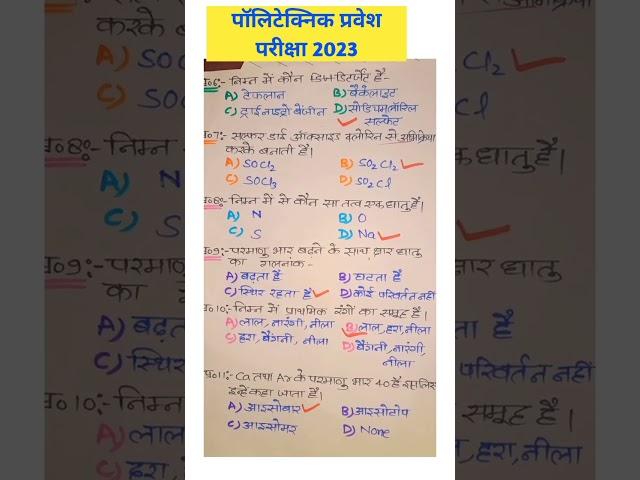 पॉलिटेक्निक प्रवेश
परीक्षा 2023
प्र०6:- निम्न में कौन डिटर्जेंट है-
A) टेफलान B) बैकेलाइट
C) ट्राईनाइट्रो बेंजीन D) सोडियम लॉरिल
सल्फेट
प्र०7:- सल्फर डाई ऑक्साइड क्लोरिन से अभिक्रिया
करके बनाती है।
A) SOCl₂ B) SO₂Cl₂
C) SOCl₃ D) SO₂Cl
प्र०8:- निम्न में से कौन सा तत्व एक धातु है।
A) N B) O
C) S D) Na
प्र०9:- परमाणु भार बढ़ने के साथ क्षार धातु
का गलनांक-
A) बढ़ता है B) घटता है
C) स्थिर रहता है D) कोई परिवर्तन नहीं
प्र०10:- निम्न में प्राथमिक रंगों का समूह है।
A) लाल, नारंगी, नीला B) लाल, हरा, नीला
C) हरा, बैंगनी, नीला D) बैंगनी, नारंगी,
नीला
प्र०11:- Ca तथा Ar के परमाणु भार 40 है इसलिए
इन्हें कहा जाता है।
A) आइसोबार B) आइसोटोप
C) आइसोमर D) None